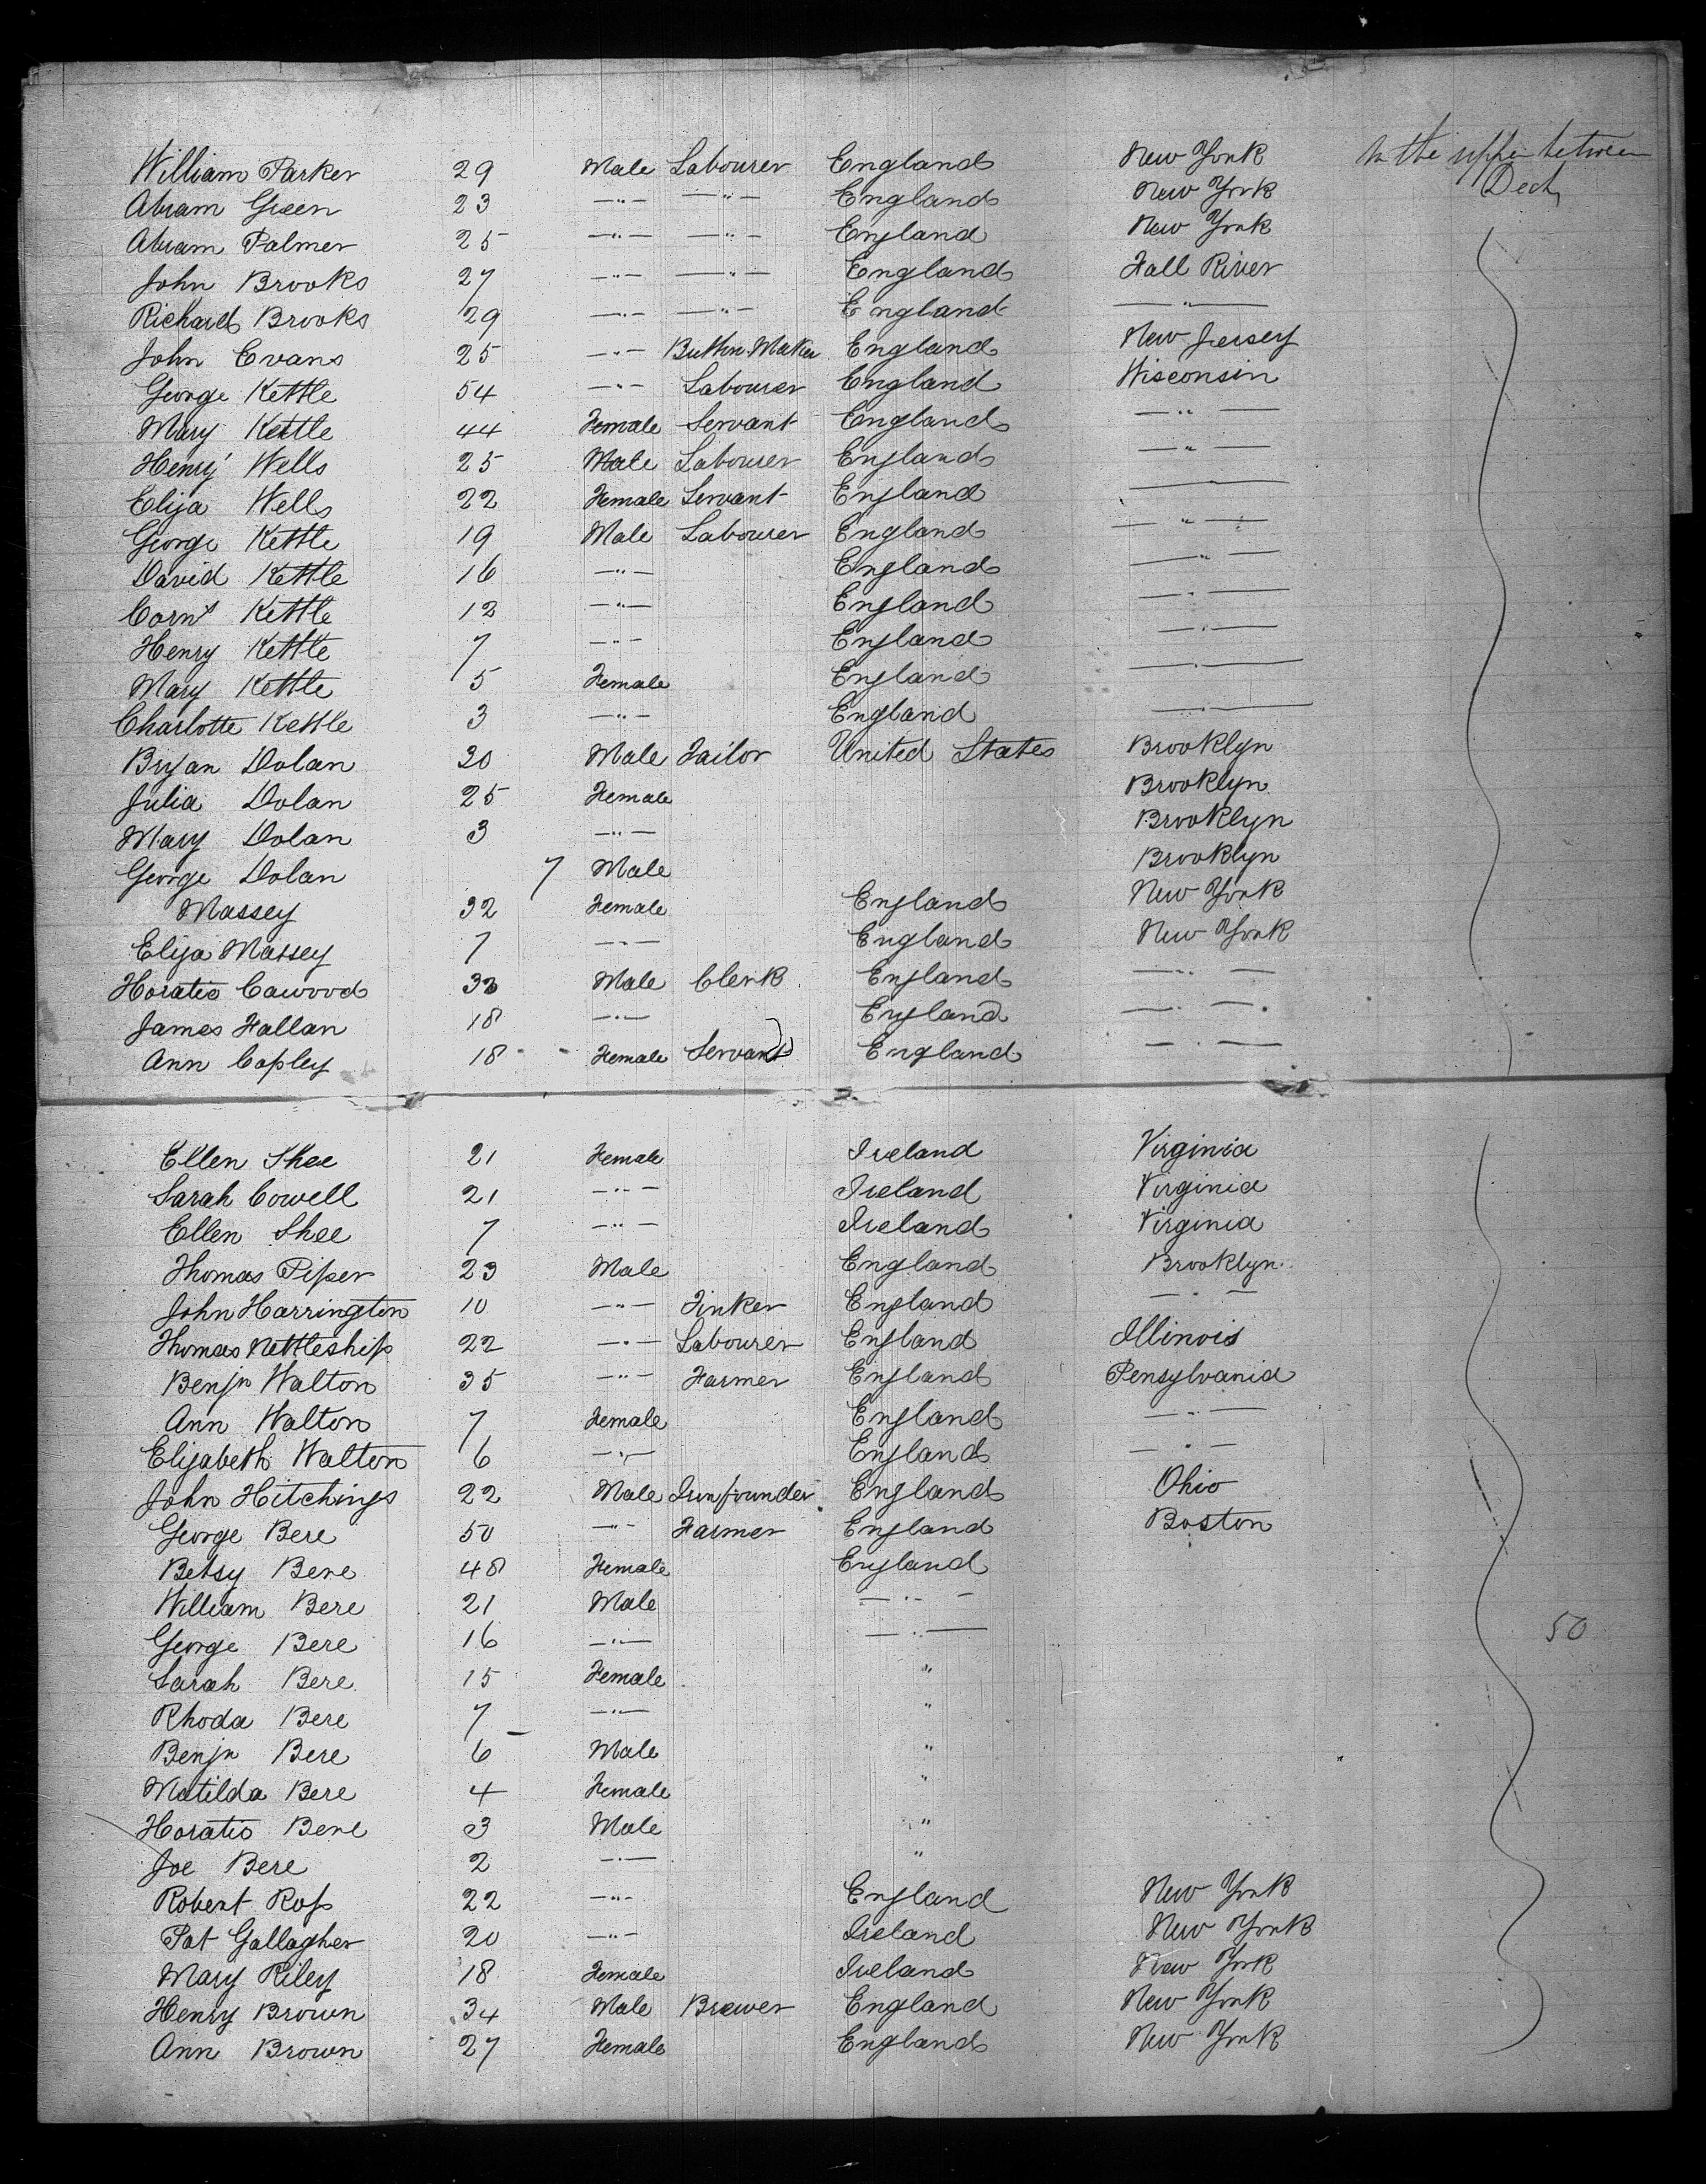 William Parker 29 Male Labourer England New York In the upper between
Abram Green 23 —"— —"— England New York Deck
Abram Palmer 25 —"— —"— England New York
John Brooks 27 —"— —"— England Fall River
Richard Brooks 29 —"— —"— England —"—
John Evans 25 —"— Button Maker England New Jersey
George Kettle 54 —"— Labourer England Wisconsin
Mary Kettle 44 Female Servant England —"—
Henry Wells 25 Male Labourer England —"—
Eliza Wells 22 Female Servant England —"—
George Kettle 19 Male Labourer England —"—
David Kettle 16 —"— England —"—
Corns Kettle 12 —"— England —"—
Henry Kettle 7 —"— England —"—
Mary Kettle 5 Female England —"—
Charlotte Kettle 3 —"— England —"—
Bryan Dolan 30 Male Tailor United States Brooklyn
Julia Dolan 25 Female Brooklyn
Mary Dolan 3 —"— Brooklyn
George Dolan 7 Male Brooklyn
Massey 32 Female England New York
Eliza Massey 7 —"— England New York
Horatio Cawood 33 Male Clerk England —"—
James Fallan 18 —"— England —"—
Ann Copley 18 Female Servant England —"—
Ellen Shee 21 Female Ireland Virginia
Sarah Cowell 21 —"— Ireland Virginia
Ellen Shee 7 —"— Ireland Virginia
Thomas Piper 23 Male England Brooklyn
John Harrington 10 —"— Tinker England —"—
Thomas Nettleship 22 —"— Labourer England Illinois
Benjn Walton 35 —"— Farmer England Pensylvania
Ann Walton 7 Female England —"—
Elizabeth Walton 6 —"— England —"—
John Hitchings 22 Male Ironfounder England Ohio
George Bere 50 —"— Farmer England Boston
Betsy Bere 48 Female England
William Bere 21 Male —"—
George Bere 16 —"— —"— 50
Sarah Bere 15 Female "
Rhoda Bere 7 —"— "
Benjn Bere 6 Male "
Matilda Bere 4 Female "
Horatio Bere 3 Male "
Joe Bere 2 —"— "
Robert Ross 22 —"— England New York
Pat Gallagher 20 —"— Ireland New York
Mary Riley 18 Female Ireland New York
Henry Brown 34 Male Brewer England New York
Ann Brown 27 Female England New York